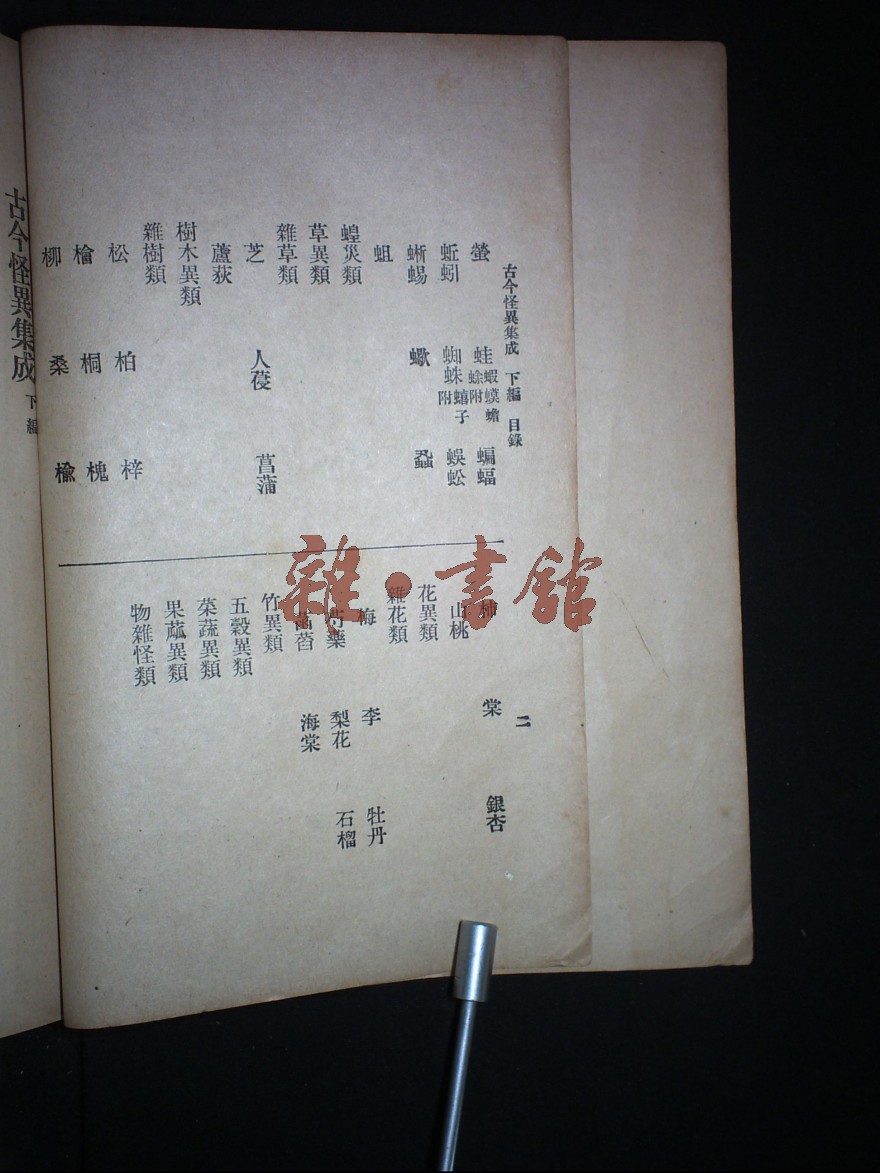 古今怪異集成 下編 目錄 二
螢 蛙蝦蟆蟾蜍附 蝙蝠
蚯蚓 蜘蛛蟢子附 蜈蚣
蜥蜴 蠍 蝨
蛆
蝗災類
草異類
雜草類
芝 人葠 菖蒲
蘆荻
樹木異類
雜樹類
松 柏 梓
檜 桐 槐
柳 桑 楡
柿 棠 銀杏
山桃
花異類
雜花類
梅 李 牡丹
芍藥 梨花 石榴
菡萏 海棠
竹異類
五穀異類
菜蔬異類
果蓏異類
物雜怪類
古今怪異集成 下編
雜·書館